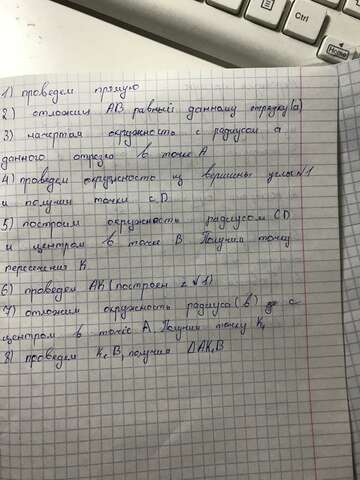 1) проведем прямую
2) отложим AB равный данному отрезку (a)
3) начертам окружность с радиусом a
данного отрезка в точке A
4) проведем окружность из вершины угла №1
и получим точки C D
5) построим окружность радиусом CD
и центром в точке B. Получим точку
пересения K
6) проведем AK (построен ∠ №1)
7) отложим окружность радиуса (b) с
центром в точке A. Получим точку K₁
8) проведем K₁ B, получим ΔAK₁B
Ctrl
Home